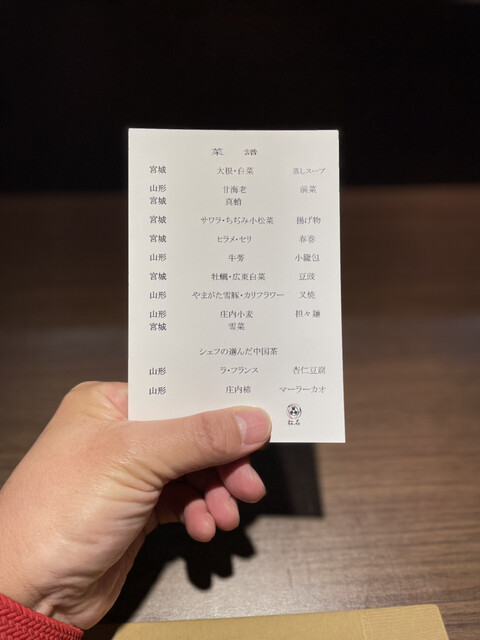 菜 譜
宮城 大根・白菜 蒸しスープ
山形 甘海老 前菜
宮城 真蛸
宮城 サワラ・ちぢみ小松菜 揚げ物
宮城 ヒラメ・セリ 春巻
山形 牛蒡 小籠包
宮城 牡蠣・広東白菜 豆豉
山形 やまがた雪豚・カリフラワー 叉焼
山形 庄内小麦 担々麺
宮城 雪菜
シェフの選んだ中国茶
山形 ラ・フランス 杏仁豆腐
山形 庄内柿 マーラーカオ